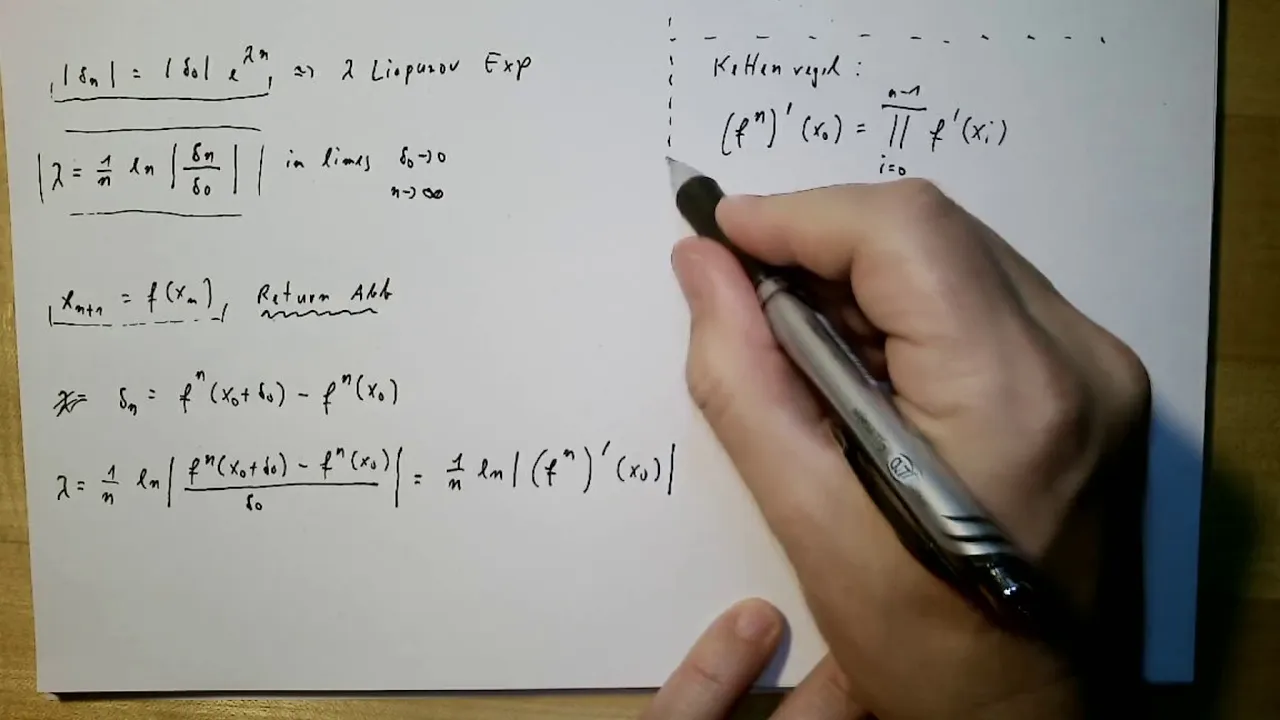 |δn| = |δ0| e^λn => λ Liapunov Exp
λ = 1/n ln |δn/δ0| in limes δ0→0
n→∞
xn+1 = f(xn) Return Abb
δn = f^n(x0+δ0) - f^n(x0)
λ = 1/n ln | (f^n(x0+δ0) - f^n(x0))/δ0 | = 1/n ln |(f^n)'(x0)|
Kettenregel :
(f^n)'(x0) = ∏_{i=0}^{n-1} f'(xi)
0.7